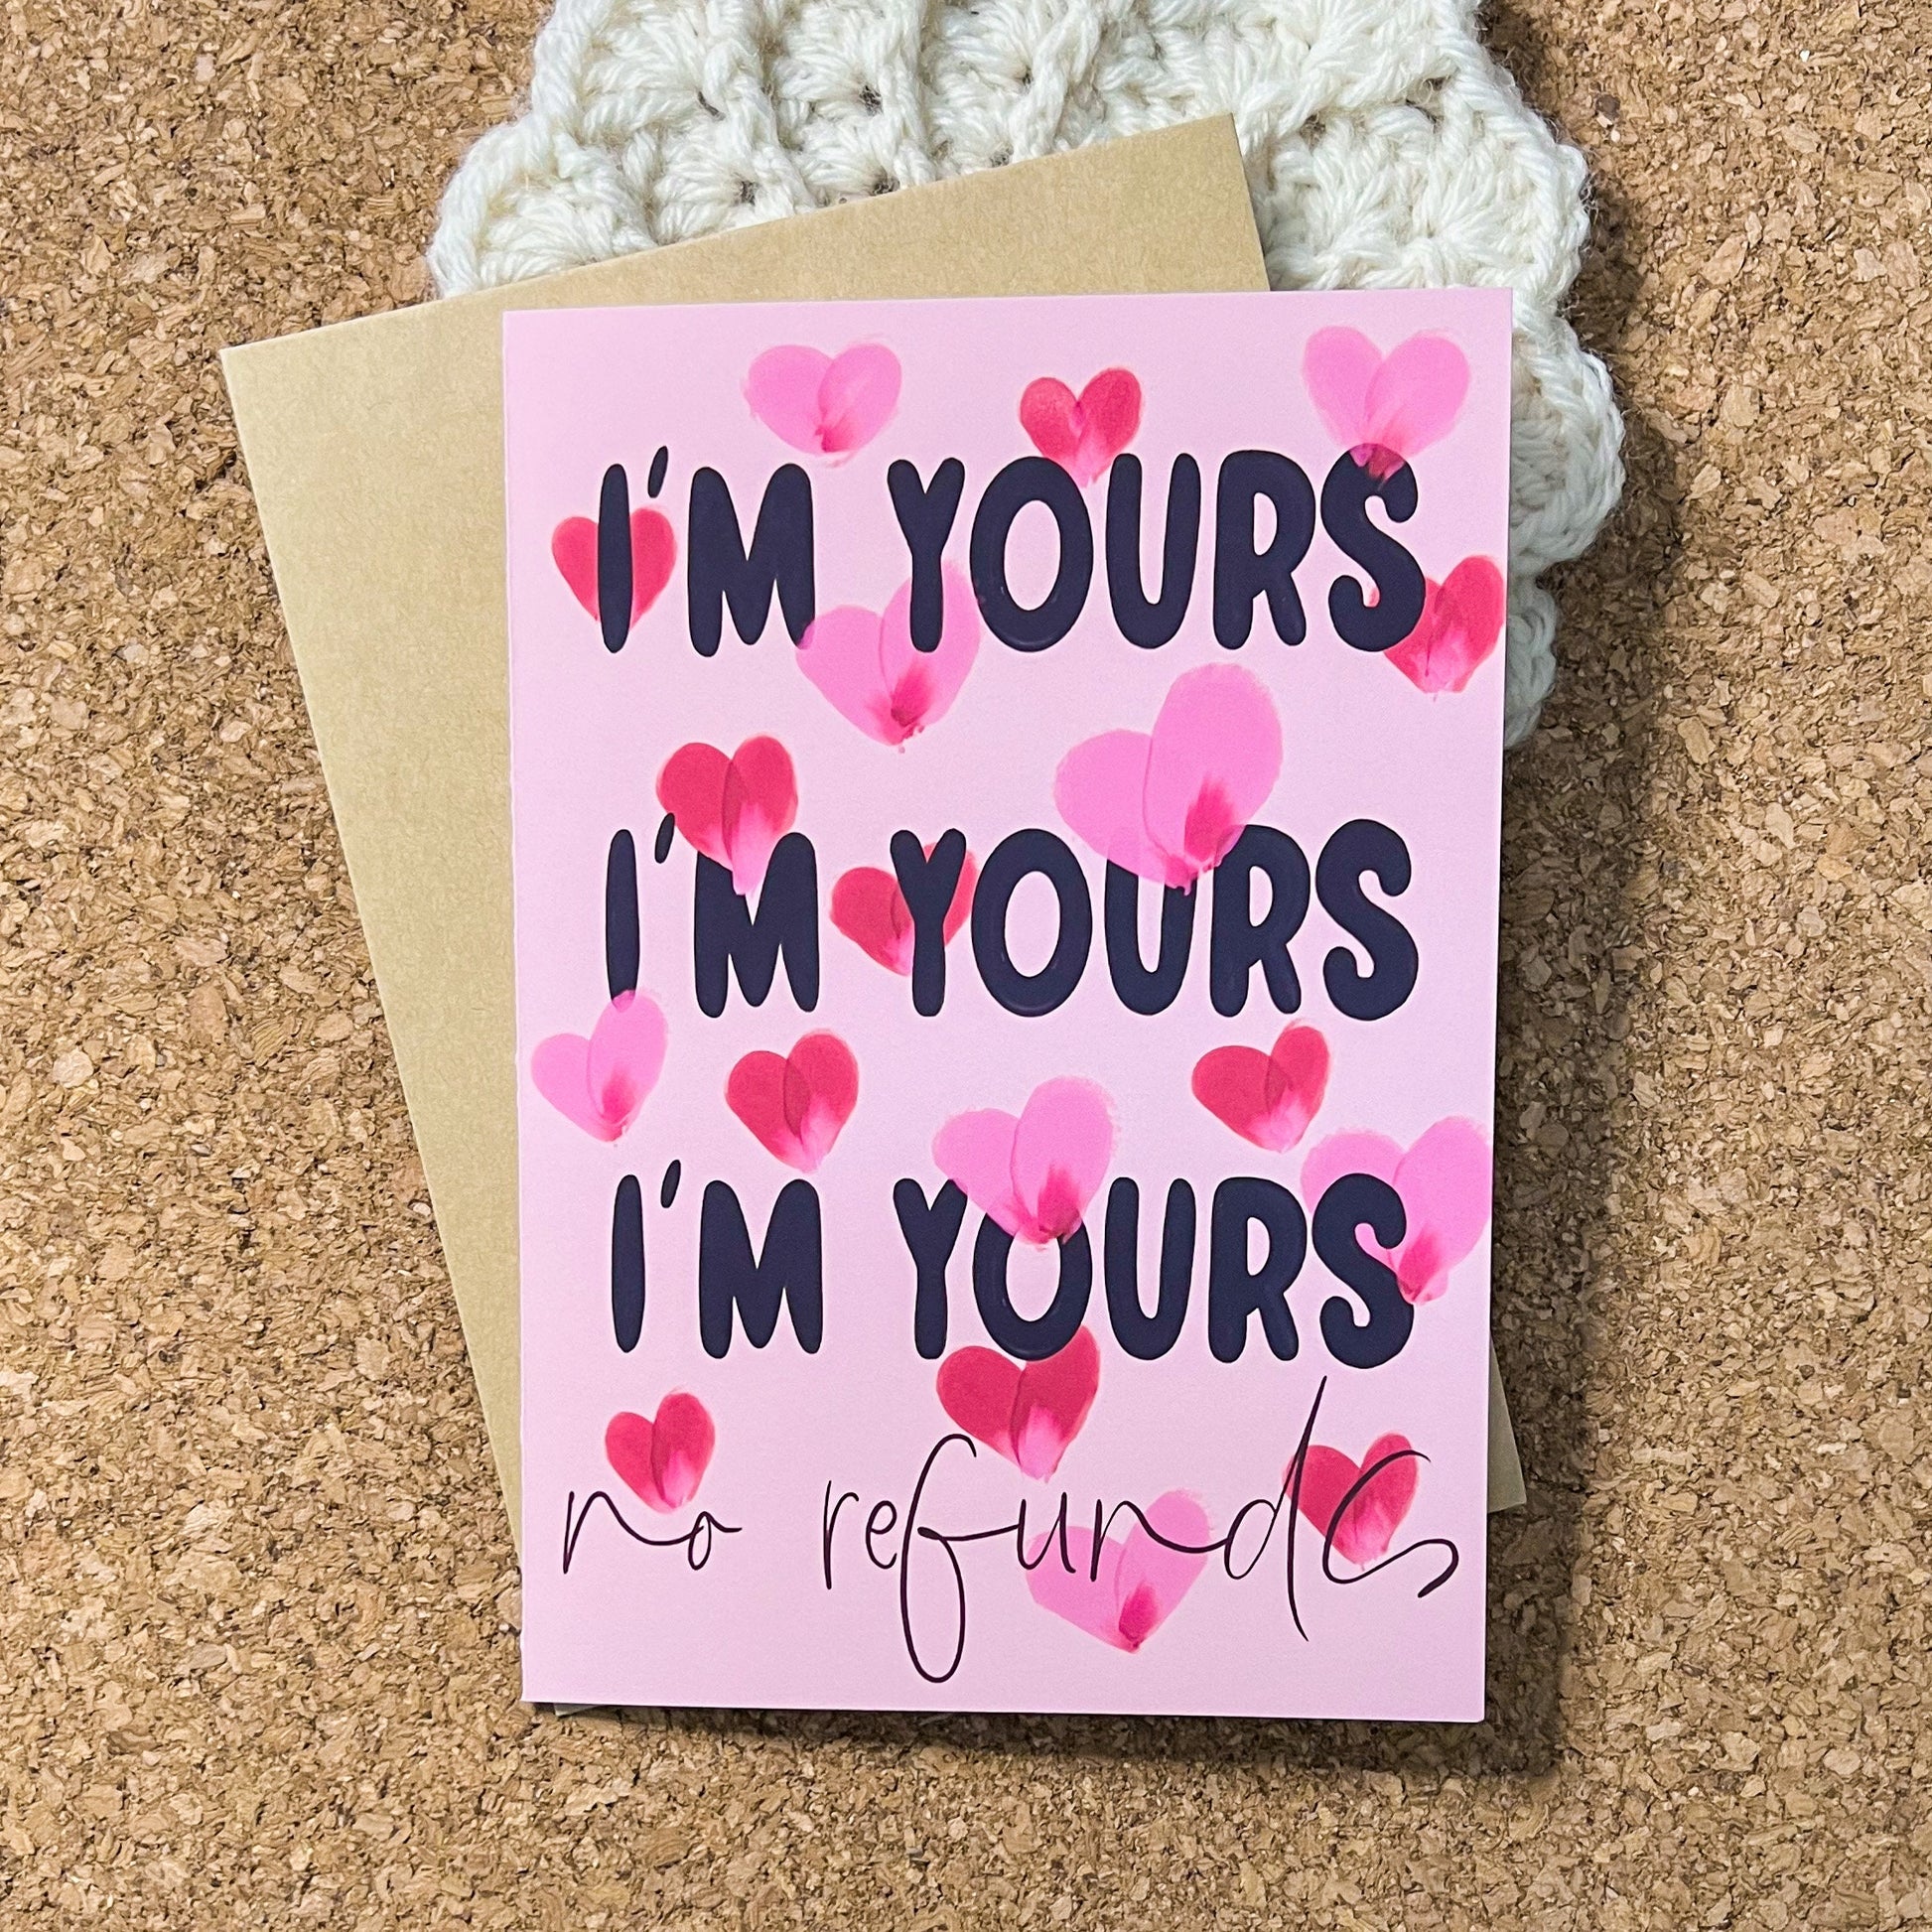 I'M YOURS
I'M YOURS
I'M YOURS
no refunds